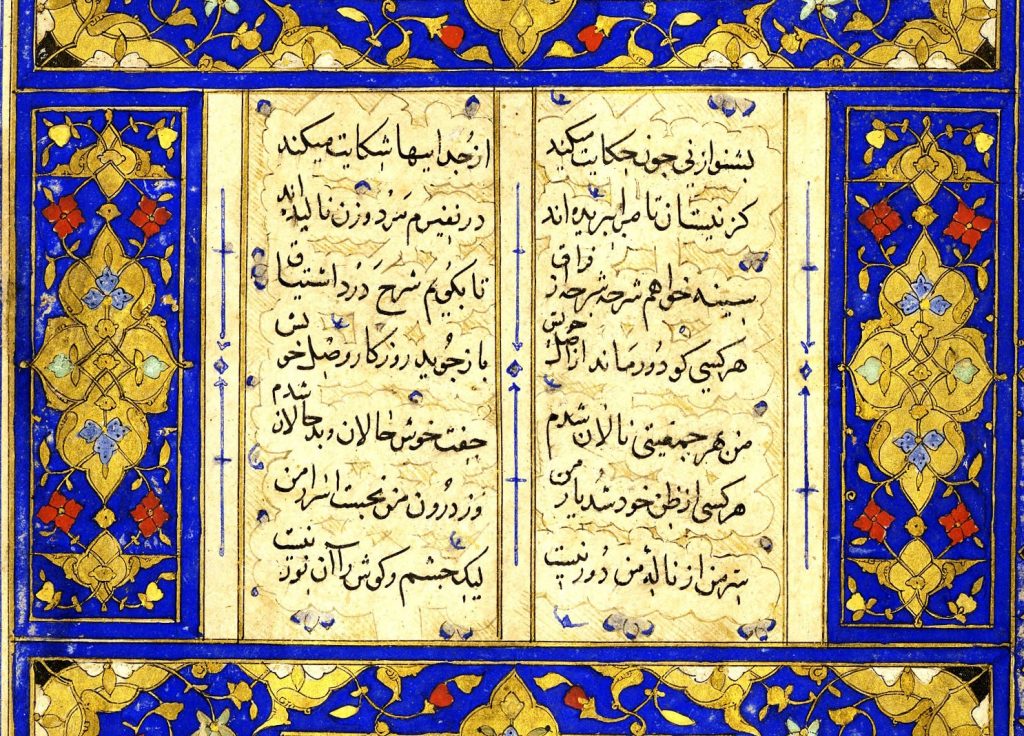 بشنو از نی چون حکایت میکند
از جداییها شکایت میکند
کز نیستان تا مرا ببریده اند
در نفیرم مرد و زن نالیده اند
سینه خواهم شرحه شرحه از فراق
تا بگویم شرح درد اشتیاق
هر کسی کو دور ماند از اصل خویش
باز جوید روزگار وصل خویش
من بهر جمعیتی نالان شدم
جفت خوش حالان و بد حالان شدم
هر کسی از ظن خود شد یار من
وز درون من نجست اسرار من
سر من از نالهٔ من دور نیست
لیک چشم و گوش را آن نور نیست